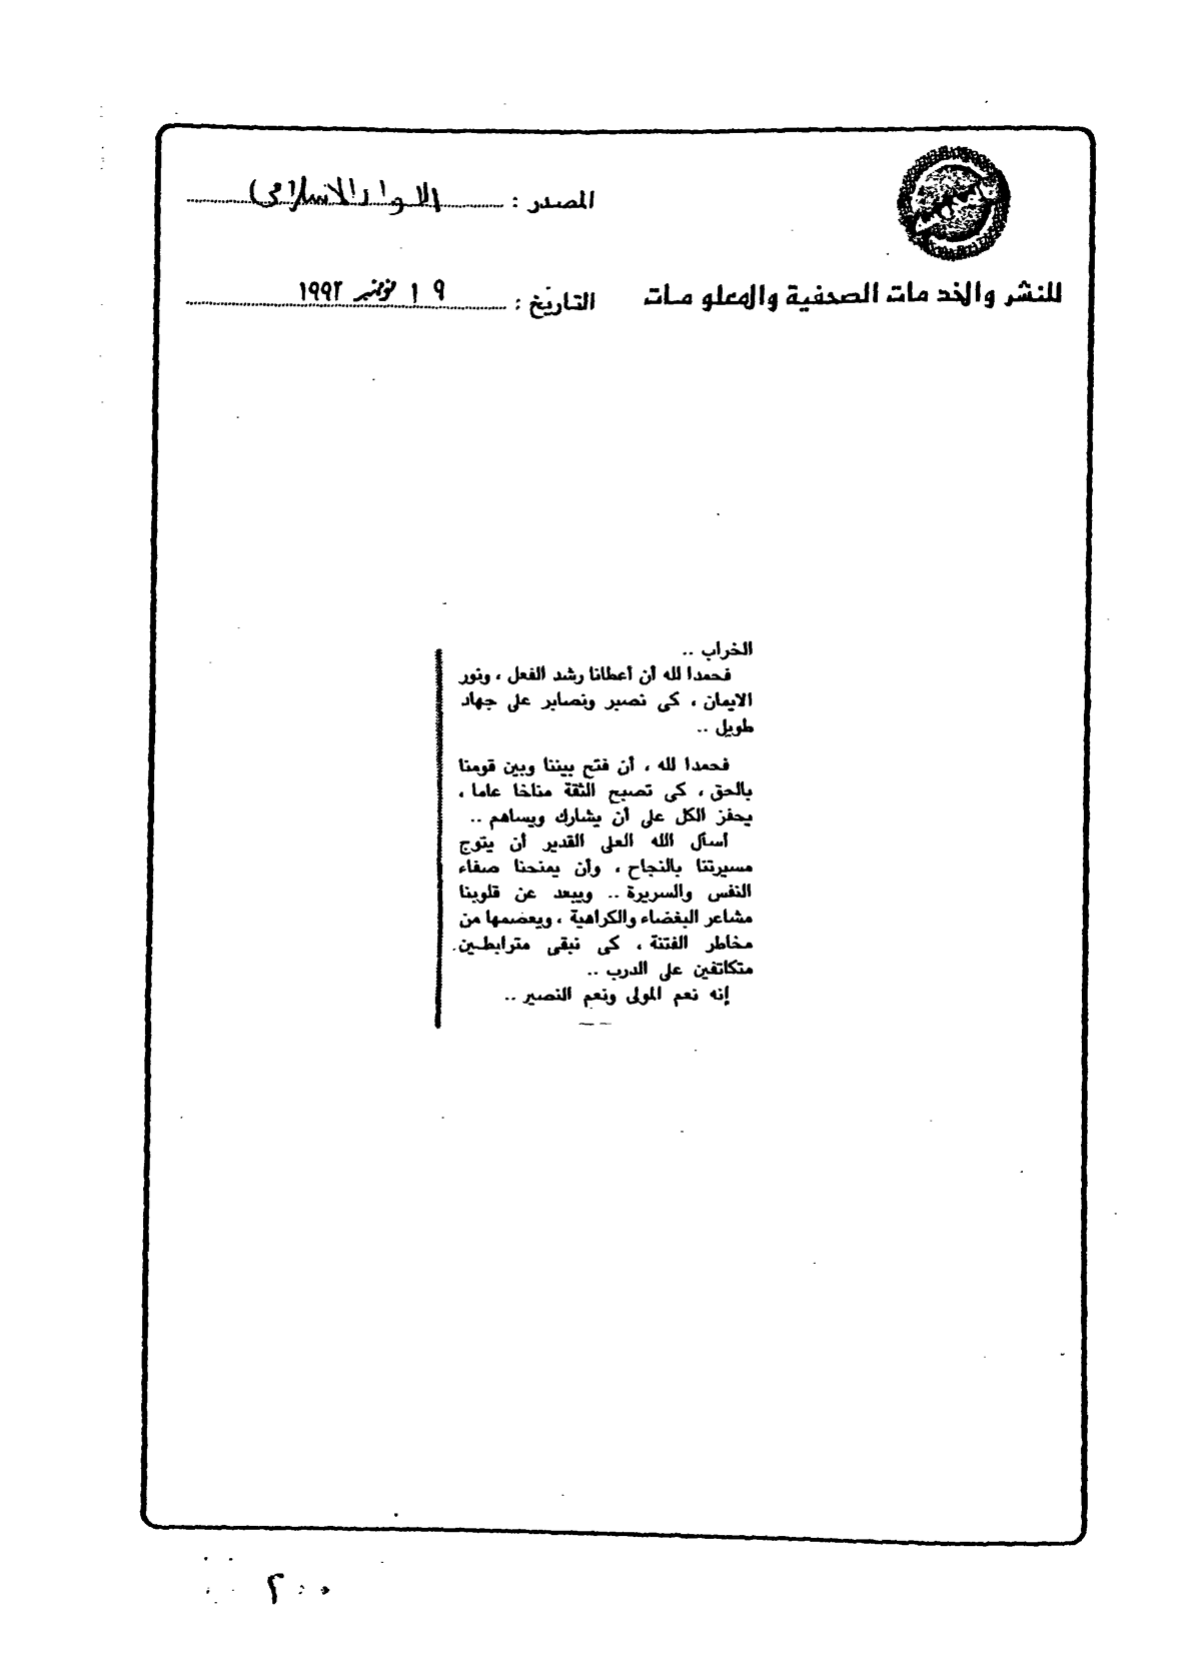 المصدر : اللواء الاسلامى
للنشر والخدمات الصحفية والمعلومات
التاريخ : ١٩ نوفمبر ١٩٩٢
الخراب ..
فحمدا لله أن أعطانا رشد الفعل ، ونور
الايمان ، كى نصبر ونصابر على جهاد
طويل ..
فحمدا لله ، أن فتح بيننا وبين قومنا
بالحق ، كى تصبح الثقة مناخا عاما ،
يحفز الكل على أن يشارك ويساهم ..
أسأل الله العلى القدير أن يتوج
مسيرتنا بالنجاح ، وأن يمنحنا صفاء
النفس والسريرة .. ويبعد عن قلوبنا
مشاعر البغضاء والكراهية ، ويعصمها من
مخاطر الفتنة ، كى نبقى مترابطين
متكاتفين على الدرب ..
إنه نعم المولى ونعم النصير ..